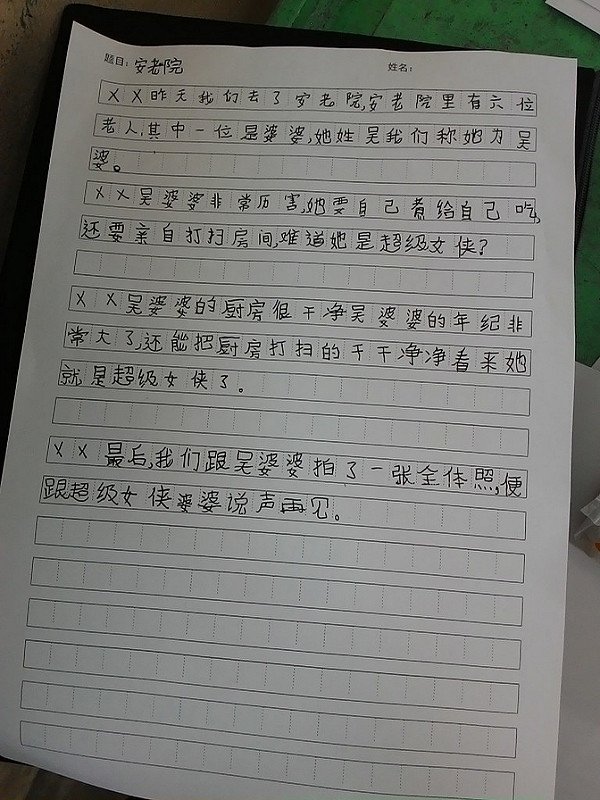 题目：安老院 姓名：
××昨天我们去了安老院,安老院里有六位
老人,其中一位是婆婆,她姓吴我们称她为吴
婆。
××吴婆婆非常历害,她要自己煮给自己吃,
还要亲自打扫房间,难道她是超级女侠?
××吴婆婆的厨房很干净吴婆婆的年纪非
常大了,还能把厨房打扫的干干净净看来她
就是超级女侠了。
××最后,我们跟吴婆婆拍了一张全体照,便
跟超级女侠婆婆说声再见。